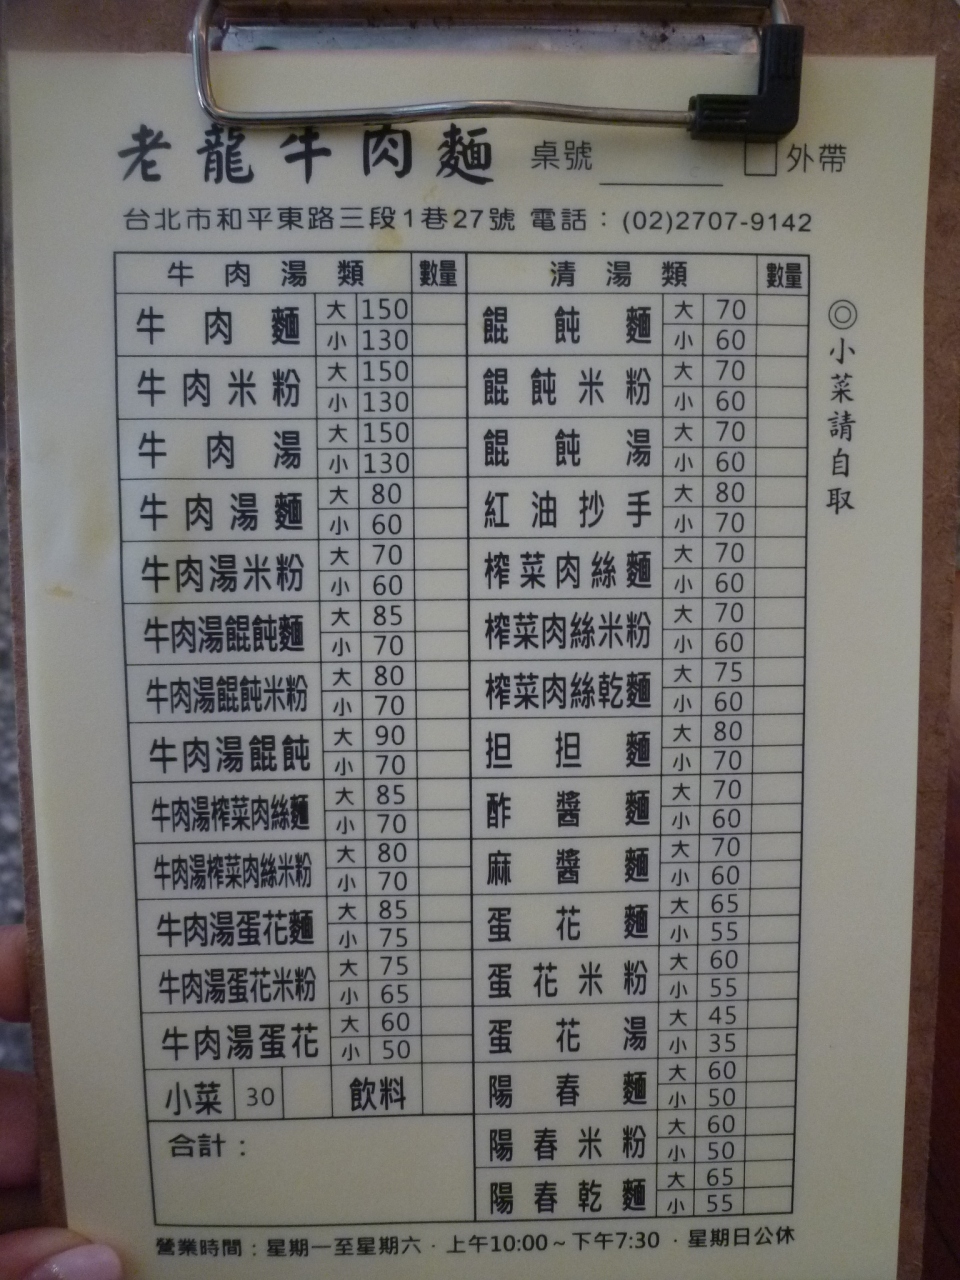 老龍牛肉麵 桌號 外帶
台北市和平東路三段1巷27號 電話：(02)2707-9142
牛肉湯類 數量
牛肉麵 大 150
小 130
牛肉米粉 大 150
小 130
牛肉湯 大 150
小 130
牛肉湯麵 大 80
小 60
牛肉湯米粉 大 70
小 60
牛肉湯餛飩麵 大 85
小 70
牛肉湯餛飩米粉 大 80
小 70
牛肉湯餛飩 大 90
小 70
牛肉湯榨菜肉絲麵 大 85
小 70
牛肉湯榨菜肉絲米粉 大 80
小 70
牛肉湯蛋花麵 大 85
小 75
牛肉湯蛋花米粉 大 75
小 65
牛肉湯蛋花 大 60
小 50
小菜 30 飲料
合計：
清湯類 數量
餛飩麵 大 70
小 60
餛飩米粉 大 70
小 60
餛飩湯 大 70
小 60
紅油抄手 大 80
小 70
榨菜肉絲麵 大 70
小 60
榨菜肉絲米粉 大 70
小 60
榨菜肉絲乾麵 大 75
小 60
担担麵 大 80
小 70
酢醬麵 大 70
小 60
麻醬麵 大 70
小 60
蛋花麵 大 65
小 55
蛋花米粉 大 60
小 55
蛋花湯 大 45
小 35
陽春麵 大 60
小 50
陽春米粉 大 60
小 50
陽春乾麵 大 65
小 55
◎小菜請自取
營業時間：星期一至星期六．上午10:00～下午7:30．星期日公休